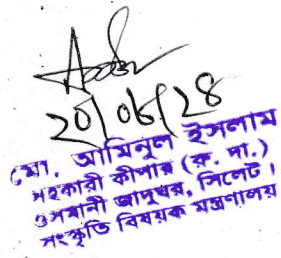 20/06/24
মো. আমিনুল ইসলাম
সহকারী কীপার (রু. দা.)
ওসমানী জাদুঘর, সিলেট।
সংস্কৃতি বিষয়ক মন্ত্রণালয়